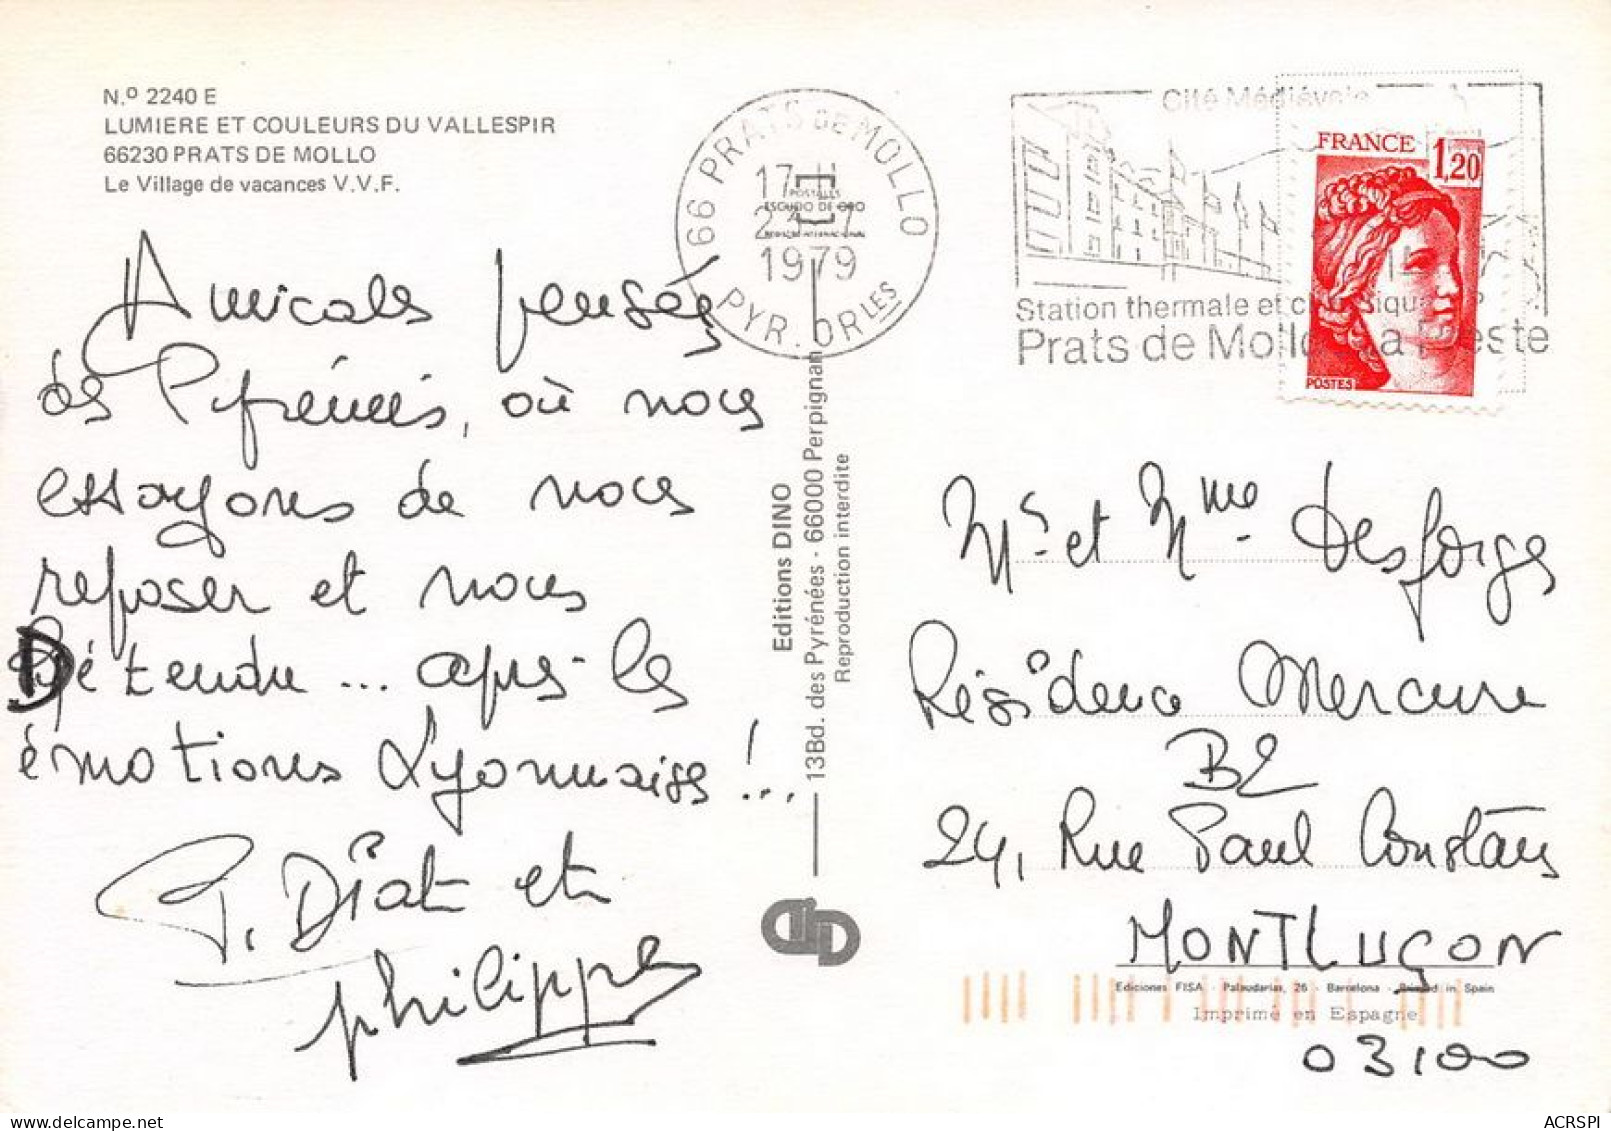 N.º 2240 E
LUMIERE ET COULEURS DU VALLESPIR
66230 PRATS DE MOLLO
Le Village de vacances V.V.F.
Amicales pensées
des Pyrénées, où nous
essayons de nous
reposer et nous
Détendre... après les
émotions Lyonnaises !...
P. Diat et
philippe
66 PRATS DE MOLLO
17 H
1979
PYR. ORLES
POSTALES
ESCUDO DE ORO
Editions DINO
13Bd. des Pyrénées - 66000 Perpignan
Reproduction interdite
Cité Médiévale
Station thermale et
Prats de Mollo
FRANCE
1,20
POSTES
Mr et Mme Desforges
Résidence Mercure
B2
24, Rue Paul Constans
MONTLUÇON
Ediciones FISA - Palaudarias, 26 - Barcelona - Printed in Spain
Imprimé en Espagne
03100
ACRSPI